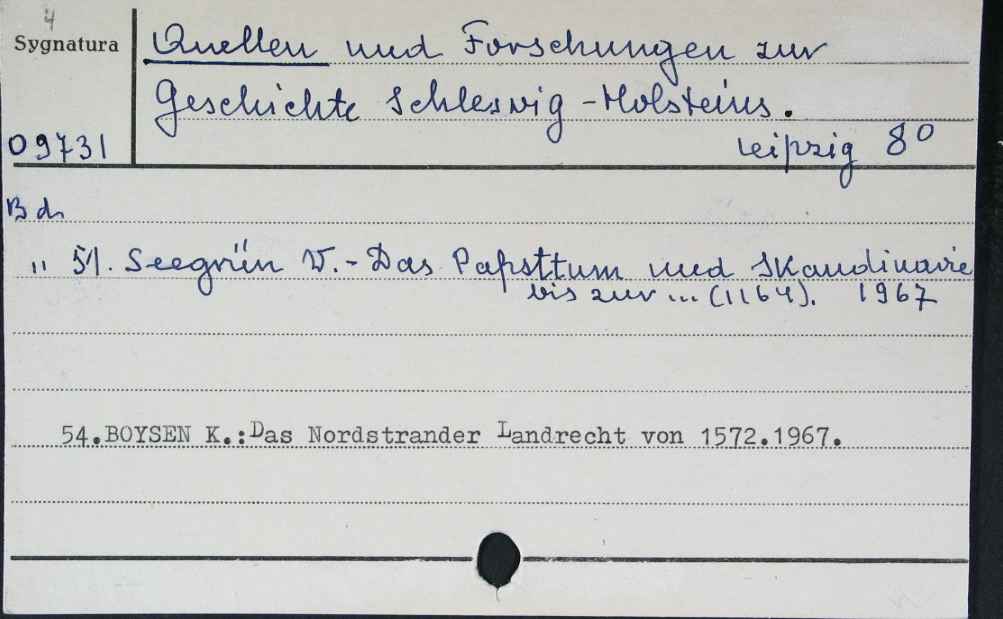 4
Sygnatura
Quellen und Forschungen zur
Geschichte Schleswig-Holsteins.
09731
Leipzig 8⁰
Bd.
" 51. Seegrün W.- Das Papsttum und Skandinavie
bis zur ... (1164). 1967
54.BOYSEN K.:Das Nordstrander Landrecht von 1572.1967.